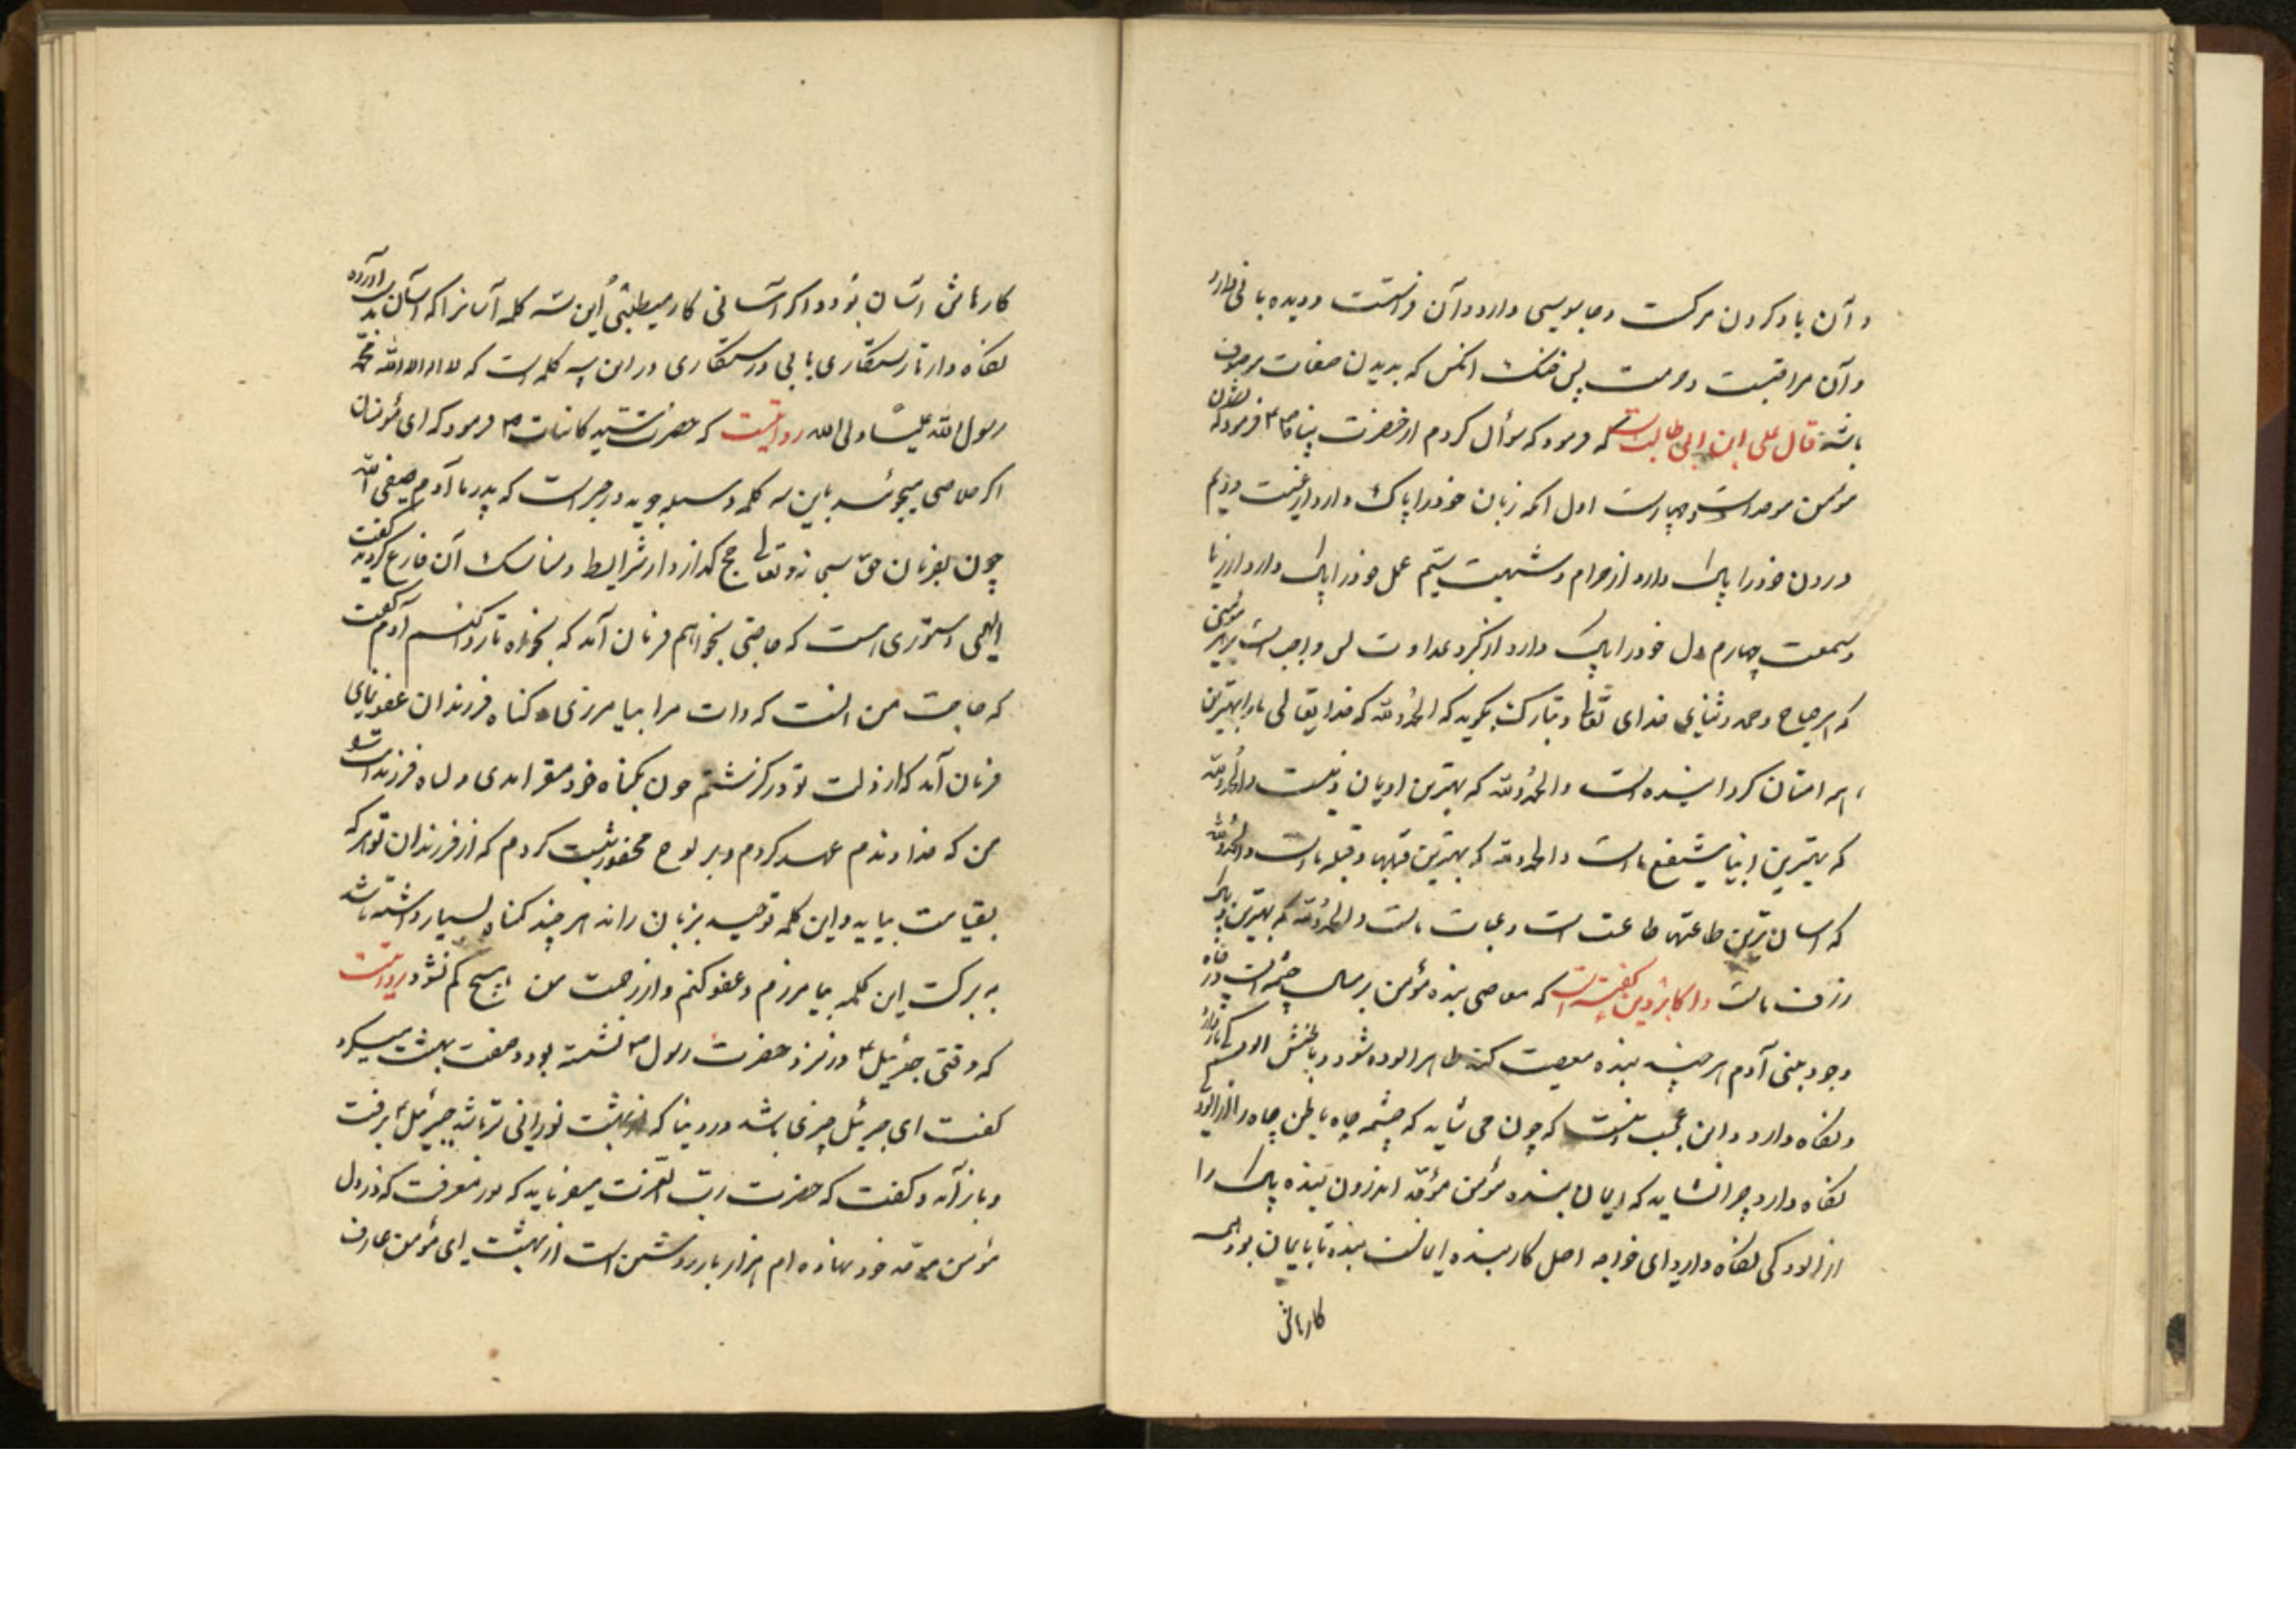 و آن یاد کردن مرکست و جاسوسی دارد و آن فراستست و دیده بانی دارد
و آن مراقبتست و حرمت پس خنک انکس که بدین صفات موصوف
باشد قال علی ابن ابی طالب است که فرمود که سؤال کردم از حضرت که فرمود که
مؤمن موحد است و چهار است اول انکه زبان خود را پاک دارد از غیبت دویم
درون خود را پاک دارد از حرام و شبهت سیّم عمل خود را پاک دارد از ریا
و سمعت چهارم دل خود را پاک دارد از کبر و عداوت پس واجب است بر هر مؤمنی
که هر صباح و حمد و ثنای خدای تعالی و تبارک بکوید که الحمد لله که خدایتعالی ما را بهترین
همه امتان کردانیده است والحمد لله که بهترین ادیان دینست والحمد لله
که بهترین انبیا شفیع ماست والحمد لله که بهترین قبلها قبله ماست والحمد لله
که اسان ترین طاعتها طاعت است و عبادت ماست والحمد لله که بهترین و پاک
رزق ماست و اکابر دین کفته اند که معاصی بنده مؤمن بر مثال چشمه است و در چاه
وجود بنی آدم هر چند بنده معصیت کند ظاهر الوده شود و باطنش
و نکاه دارد و این عجب نیست که چون می شاید که چشمه چاه باطن چاه را از
نکاه دارد چرا نشاید که ایمان بنده مؤمن موحّد اندرون بنده پاک را
از الودکی نکاه دارد ای خواجه اصل کار بنده ایمانست بنده تا با یمان بود همه
کارهاش
کارهاش اسان بود و اکر اسانی کار میطلبی این سه کلمه آسانرا که اسان بدست آورده
نکاه دار تا رستکاری یابی و رستکاری در این سه کلمه است که لا اله الا الله محمّد
رسول الله علیّاً ولی الله روایتست که حضرت سیّد کاینات ص فرمود که ای مؤمنان
اکر خلاصی میجوئید باین سه کلمه وسیله جویید در خبر است که پدر ما آدم صفی الله
چون بفرمان حق سبحانه و تعالی حج کذارد و از شرایط و مناسک آن فارغ کردید کفت
الهی دستوری هست که حاجتی بخواهم فرمان آمد که بخواه تا روا کنم آدم کفت
که حاجت من انست که ذات مرا بیامرزی و کناه فرزندان عفو نمای
فرمان آمد که از ذلت تو در کذشتم چون بکناه خود مقر امدی و کناه فرزندان تو
من که خداوندم عهد کردم و بر لوح محفوظ ثبت کردم که از فرزندان تو هر که
بقیامت بیاید و این کلمه توحید بزبان راند هر چند کناه بسیار داشته باشد
به برکت این کلمه بیامرزم و عفو کنم و از رحمت من هیچ کم نشود روایتست
که وقتی جبرئیل ع در نزد حضرت رسول ص نشسته بود و صفت بهشت میکرد
کفت ای جبرئیل چیزی باشد در دنیا که از بهشت نورانی تر باشد جبرئیل ع برفت
و باز آمد و کفت که حضرت رب العزت میفرماید که نور معرفت که در دل
مؤمن موحّد خود نهاده ام هزار بار روشن است از بهشت ای مؤمن عارف